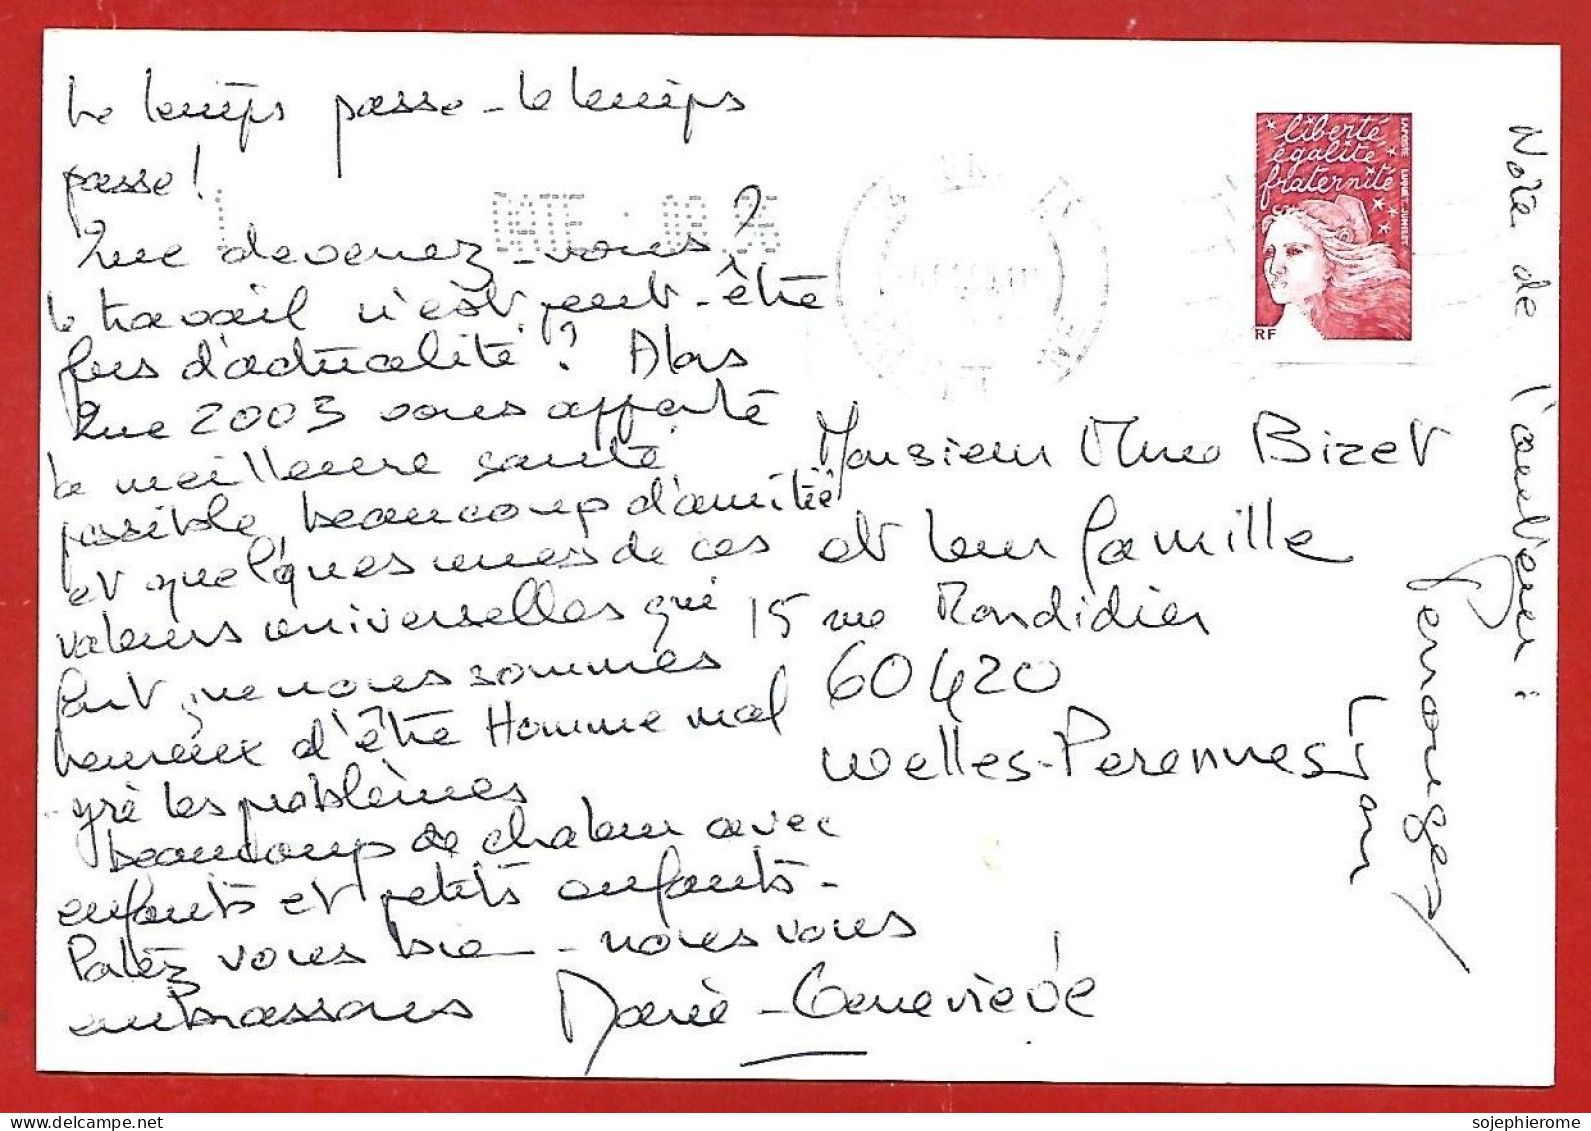 Le temps passe - le temps
passe !
Que devenez-vous ?
le travail n'est peut-être
plus d'actualité ? Alors
Que 2003 vous apporte
la meilleure santé
possible, beaucoup d'amitié
et quelques unes de ces
valeurs universelles qui
font que nous sommes
heureux d'être Homme mal
gré les problèmes
beaucoup de chaleur avec
enfants et petits enfants -
Portez vous bien - nous vous
embrassons Marie-Geneviève
DATE : 08
liberté
égalité
fraternité
LA POSTE LUQUET-JUMELET
RF
Monsieur Mme Bizet
et leur famille
15 rue Mondidier
60420
Welles-Perennes
Note de l'auteur :
sojephierome